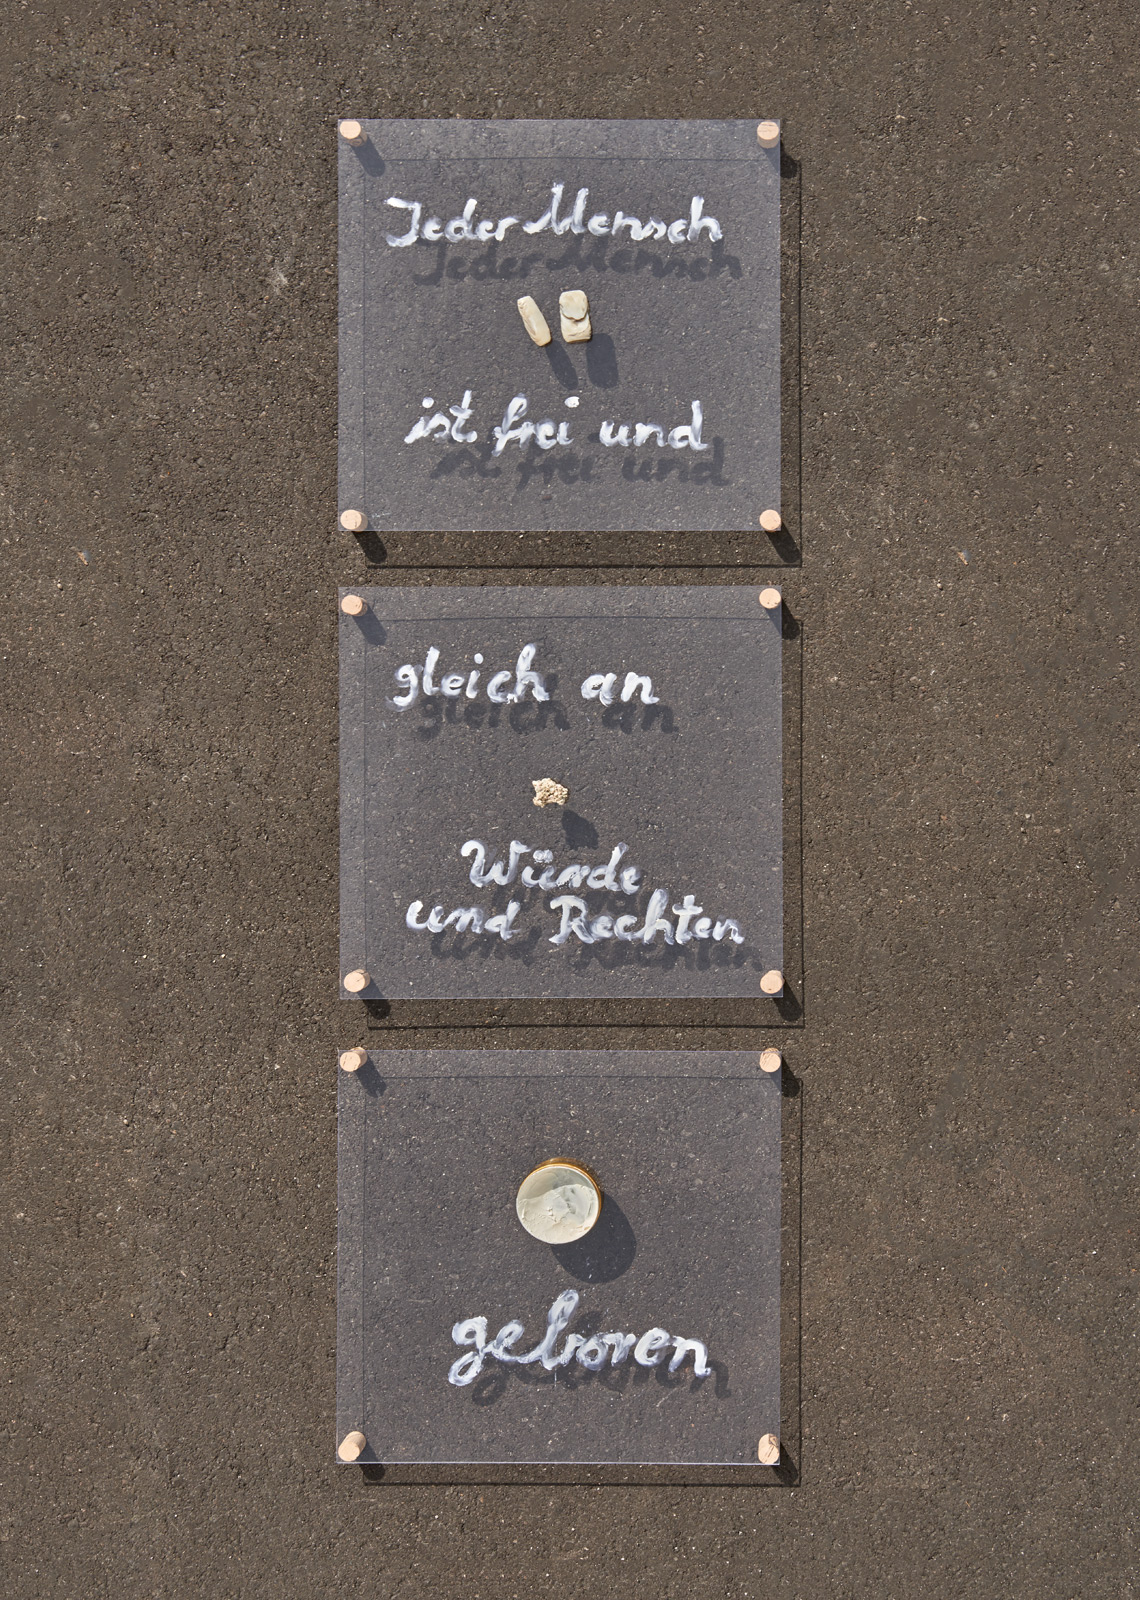 Jeder Mensch
ist frei und
gleich an
Würde
und Rechten
geboren